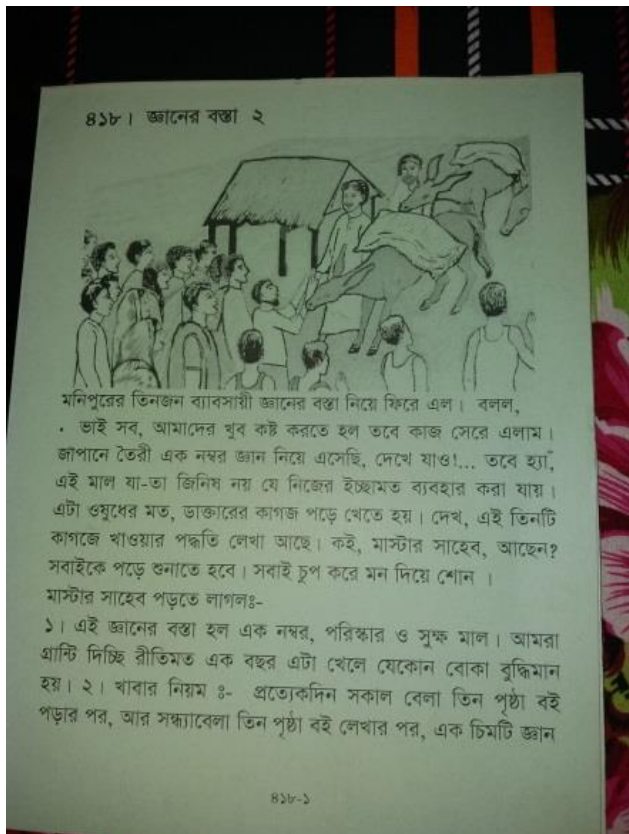 ৪১৮। জ্ঞানের বস্তা ২
মনিপুরের তিনজন ব্যাবসায়ী জ্ঞানের বস্তা নিয়ে ফিরে এল। বলল,
· ভাই সব, আমাদের খুব কষ্ট করতে হল তবে কাজ সেরে এলাম।
জাপানে তৈরী এক নম্বর জ্ঞান নিয়ে এসেছি, দেখে যাও!... তবে হ্যাঁ,
এই মাল যা-তা জিনিষ নয় যে নিজের ইচ্ছামত ব্যবহার করা যায়।
এটা ওষুধের মত, ডাক্তারের কাগজ পড়ে খেতে হয়। দেখ, এই তিনটি
কাগজে খাওয়ার পদ্ধতি লেখা আছে। কই, মাস্টার সাহেব, আছেন?
সবাইকে পড়ে শুনাতে হবে। সবাই চুপ করে মন দিয়ে শোন ।
মাস্টার সাহেব পড়তে লাগলঃ-
১। এই জ্ঞানের বস্তা হল এক নম্বর, পরিস্কার ও সুক্ষ মাল। আমরা
গ্রান্টি দিচ্ছি রীতিমত এক বছর এটা খেলে যেকোন বোকা বুদ্ধিমান
হয়। ২। খাবার নিয়ম ঃ- প্রত্যেকদিন সকাল বেলা তিন পৃষ্ঠা বই
পড়ার পর, আর সন্ধ্যাবেলা তিন পৃষ্ঠা বই লেখার পর, এক চিমটি জ্ঞান
৪১৮-১